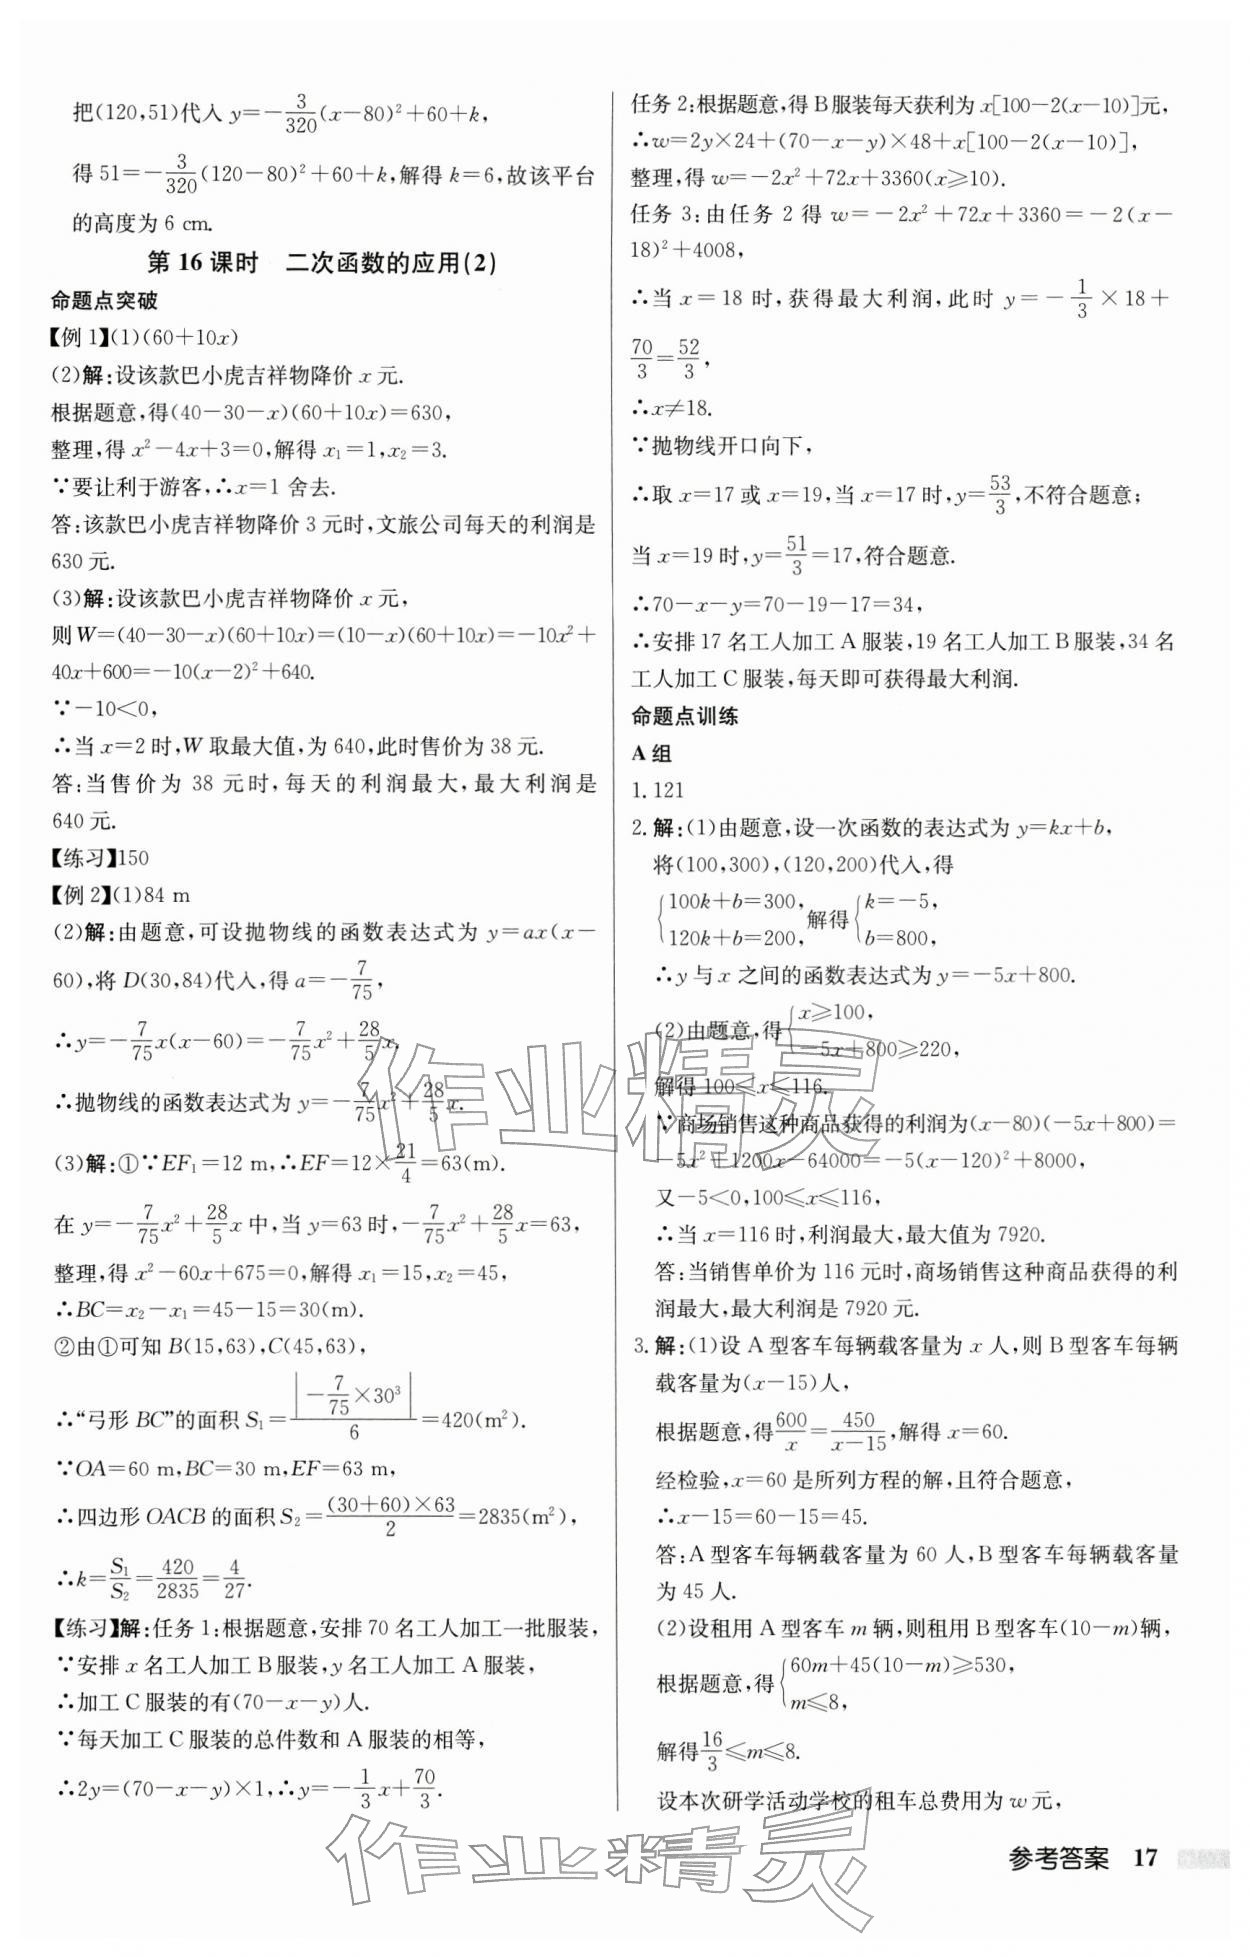 把(120,51)代入 y=-3/320(x-80)²+60+k,
得 51=-3/320(120-80)²+60+k,解得 k=6,故该平台
的高度为 6 cm.
第 16 课时　二次函数的应用(2)
命题点突破
【例 1】(1)(60+10x)
(2)解:设该款巴小虎吉祥物降价 x 元.
根据题意,得(40-30-x)(60+10x)=630,
整理,得 x²-4x+3=0,解得 x₁=1,x₂=3.
∵要让利于游客,∴x=1 舍去.
答:该款巴小虎吉祥物降价 3 元时,文旅公司每天的利润是
630 元.
(3)解:设该款巴小虎吉祥物降价 x 元,
则 W=(40-30-x)(60+10x)=(10-x)(60+10x)=-10x²+
40x+600=-10(x-2)²+640.
∵-10<0,
∴当 x=2 时,W 取最大值,为 640,此时售价为 38 元.
答:当售价为 38 元时,每天的利润最大,最大利润是
640 元.
【练习】150
【例 2】(1)84 m
(2)解:由题意,可设抛物线的函数表达式为 y=ax(x-
60),将 D(30,84)代入,得 a=-7/75,
∴y=-7/75x(x-60)=-7/75x²+28/5x,
∴抛物线的函数表达式为 y=-7/75x²+28/5x.
(3)解:①∵EF₁=12 m,∴EF=12×21/4=63(m).
在 y=-7/75x²+28/5x 中,当 y=63 时,-7/75x²+28/5x=63,
整理,得 x²-60x+675=0,解得 x₁=15,x₂=45,
∴BC=x₂-x₁=45-15=30(m).
②由①可知 B(15,63),C(45,63),
∴“弓形 BC”的面积 S₁=|-7/75×30³|/6=420(m²).
∵OA=60 m,BC=30 m,EF=63 m,
∴四边形 OACB 的面积 S₂=(30+60)×63/2=2835(m²),
∴k=S₁/S₂=420/2835=4/27.
【练习】解:任务 1:根据题意,安排 70 名工人加工一批服装,
∵安排 x 名工人加工 B 服装,y 名工人加工 A 服装,
∴加工 C 服装的有(70-x-y)人.
∵每天加工 C 服装的总件数和 A 服装的相等,
∴2y=(70-x-y)×1,∴y=-1/3x+70/3.
任务 2:根据题意,得 B 服装每天获利为 x[100-2(x-10)]元,
∴w=2y×24+(70-x-y)×48+x[100-2(x-10)],
整理,得 w=-2x²+72x+3360(x≥10).
任务 3:由任务 2 得 w=-2x²+72x+3360=-2(x-
18)²+4008,
∴当 x=18 时,获得最大利润,此时 y=-1/3×18+
70/3=52/3,
∴x≠18.
∵抛物线开口向下,
∴取 x=17 或 x=19,当 x=17 时,y=53/3,不符合题意;
当 x=19 时,y=51/3=17,符合题意.
∴70-x-y=70-19-17=34,
∴安排 17 名工人加工 A 服装,19 名工人加工 B 服装,34 名
工人加工 C 服装,每天即可获得最大利润.
命题点训练
A 组
1. 121
2. 解:(1)由题意,设一次函数的表达式为 y=kx+b,
将(100,300),(120,200)代入,得
{100k+b=300, 120k+b=200, 解得{k=-5, b=800,
∴y 与 x 之间的函数表达式为 y=-5x+800.
(2)由题意,得{x≥100, -5x+800≥220,
解得 100≤x≤116.
∵商场销售这种商品获得的利润为(x-80)(-5x+800)=
-5x²+1200x-64000=-5(x-120)²+8000,
又-5<0,100≤x≤116,
∴当 x=116 时,利润最大,最大值为 7920.
答:当销售单价为 116 元时,商场销售这种商品获得的利
润最大,最大利润是 7920 元.
3. 解:(1)设 A 型客车每辆载客量为 x 人,则 B 型客车每辆
载客量为(x-15)人,
根据题意,得600/x=450/(x-15),解得 x=60.
经检验,x=60 是所列方程的解,且符合题意,
∴x-15=60-15=45.
答:A 型客车每辆载客量为 60 人,B 型客车每辆载客量
为 45 人.
(2)设租用 A 型客车 m 辆,则租用 B 型客车(10-m)辆,
根据题意,得{60m+45(10-m)≥530, m≤8,
解得16/3≤m≤8.
设本次研学活动学校的租车总费用为 w 元,
作业精灵
作业精灵
参考答案　17